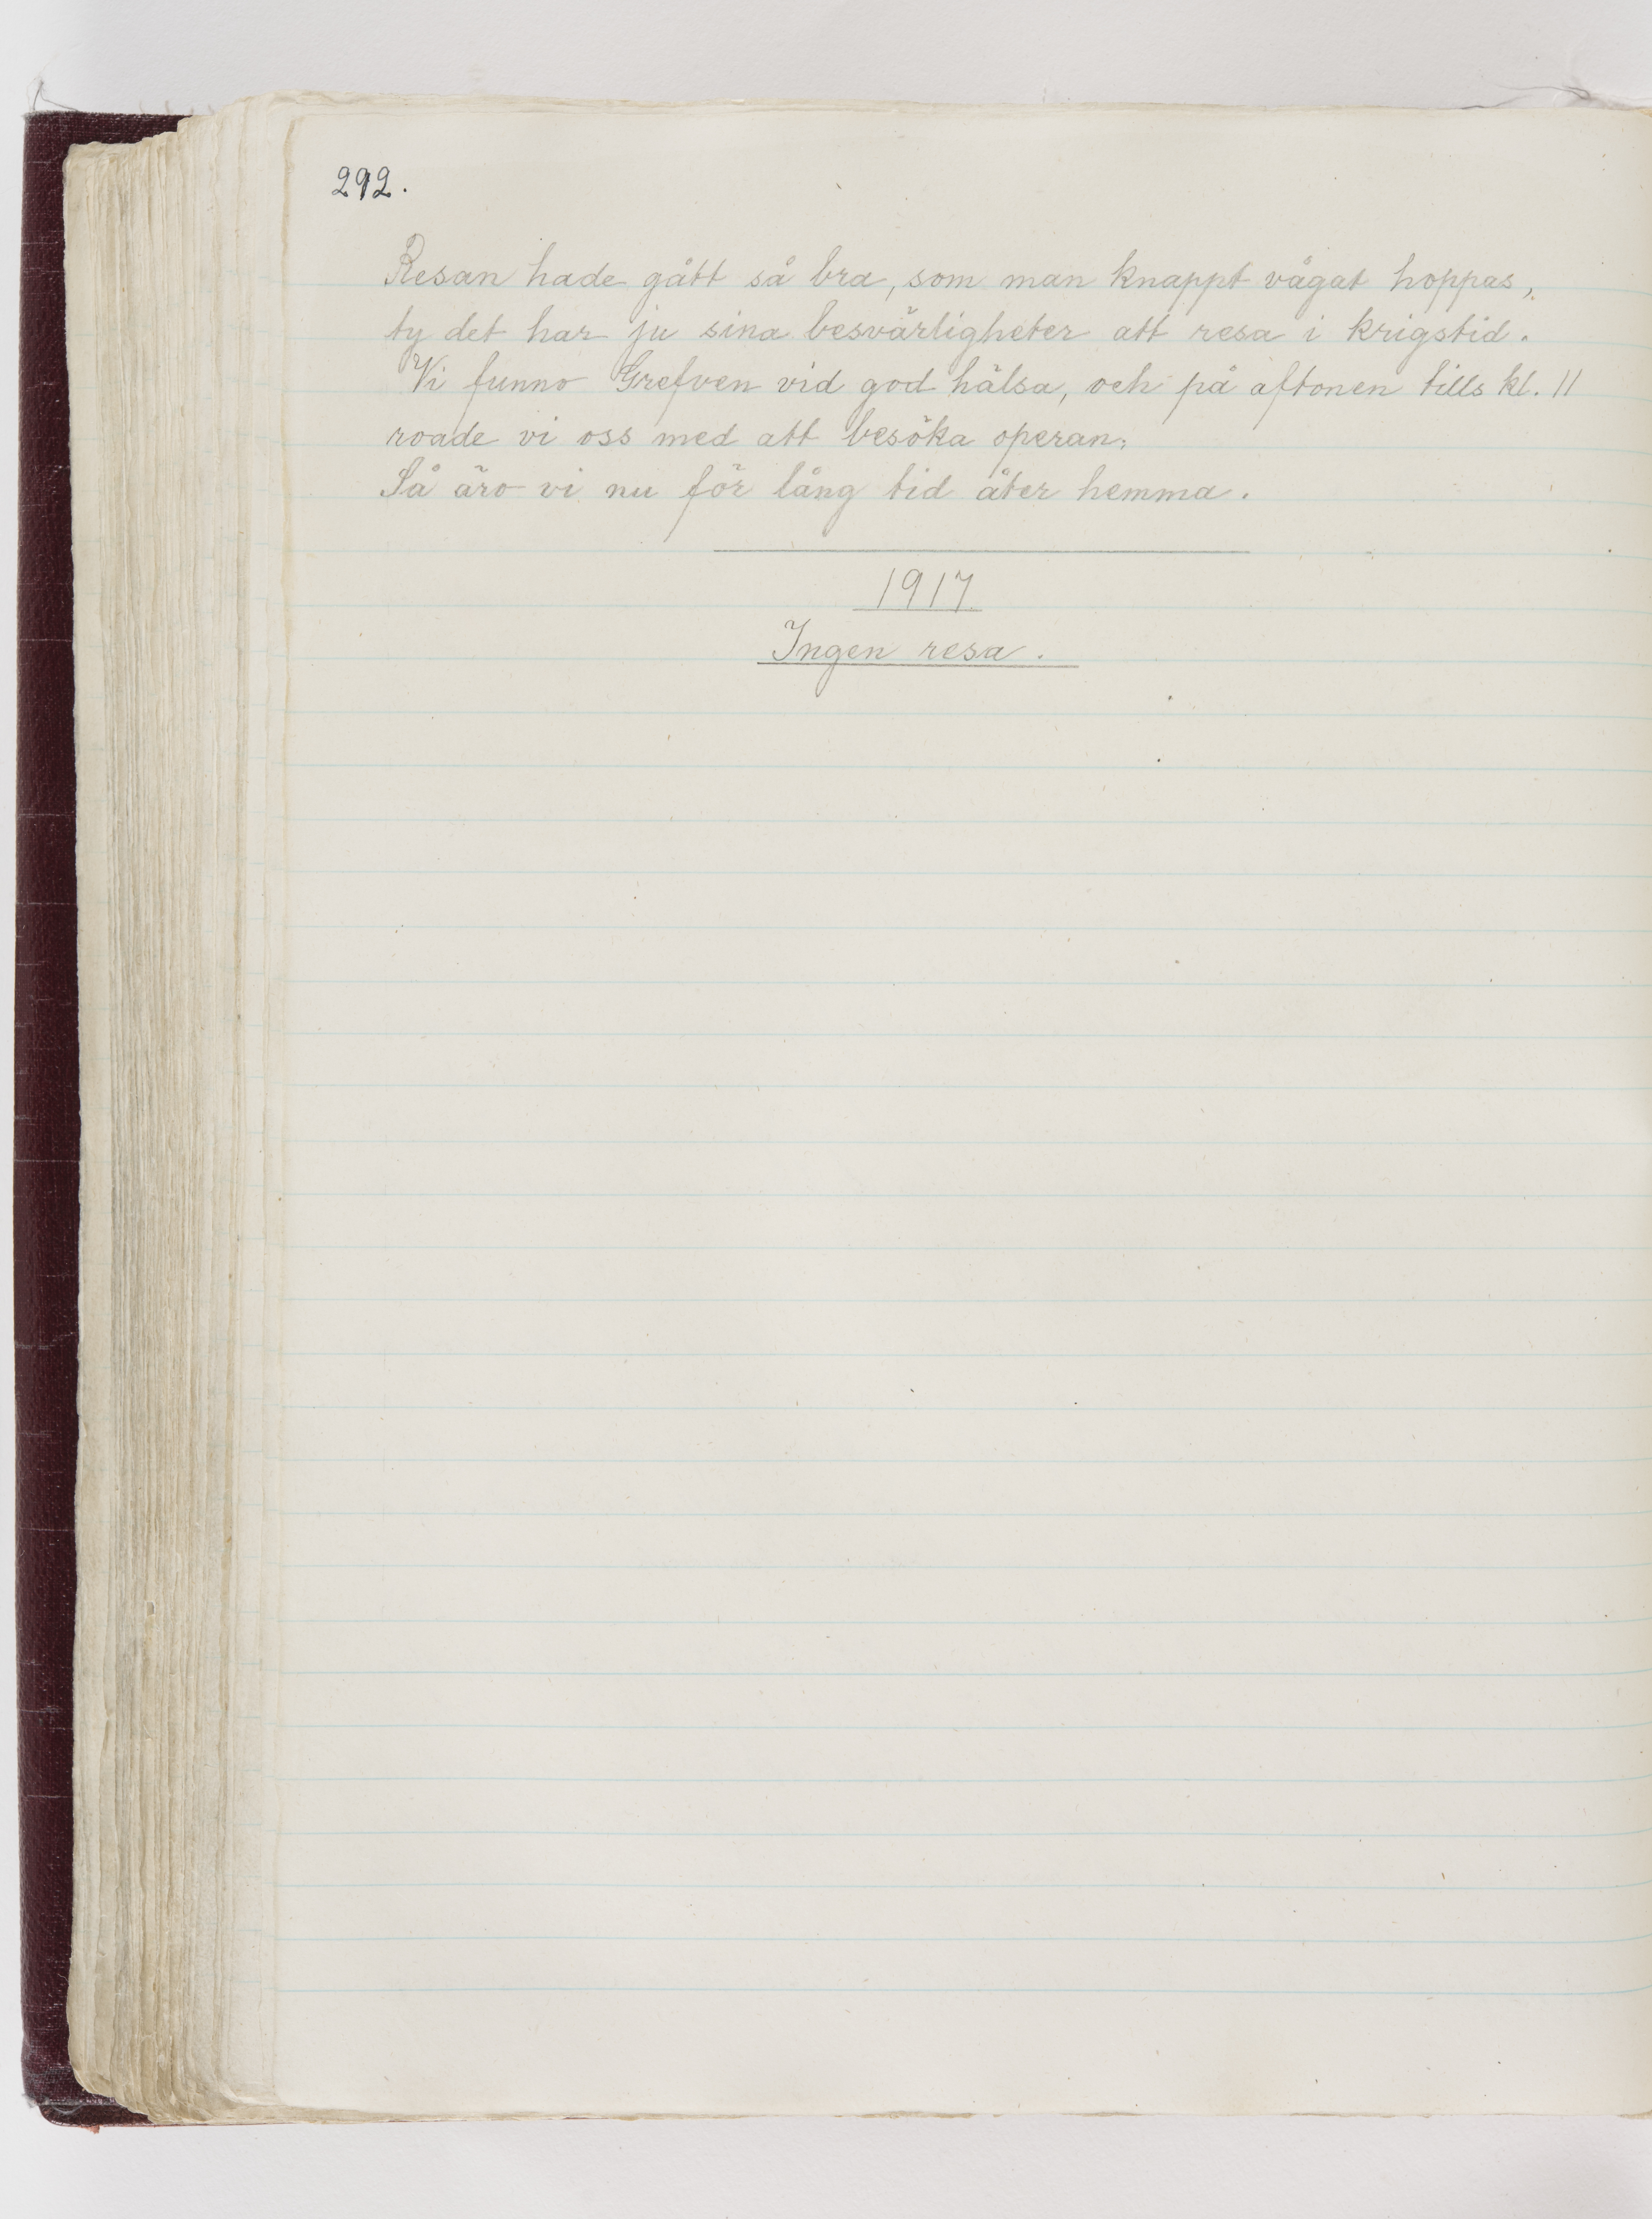 292.
Resan hade gått så bra, som man knappt vågat hoppas,
ty det har ju sina besvärligheter att resa i krigstid.
Vi funno Grefven vid god hälsa, och på aftonen tills kl. 11
roade vi oss med att besöka operan.
Så äro vi nu för lång tid åter hemma.
1917
Ingen resa.